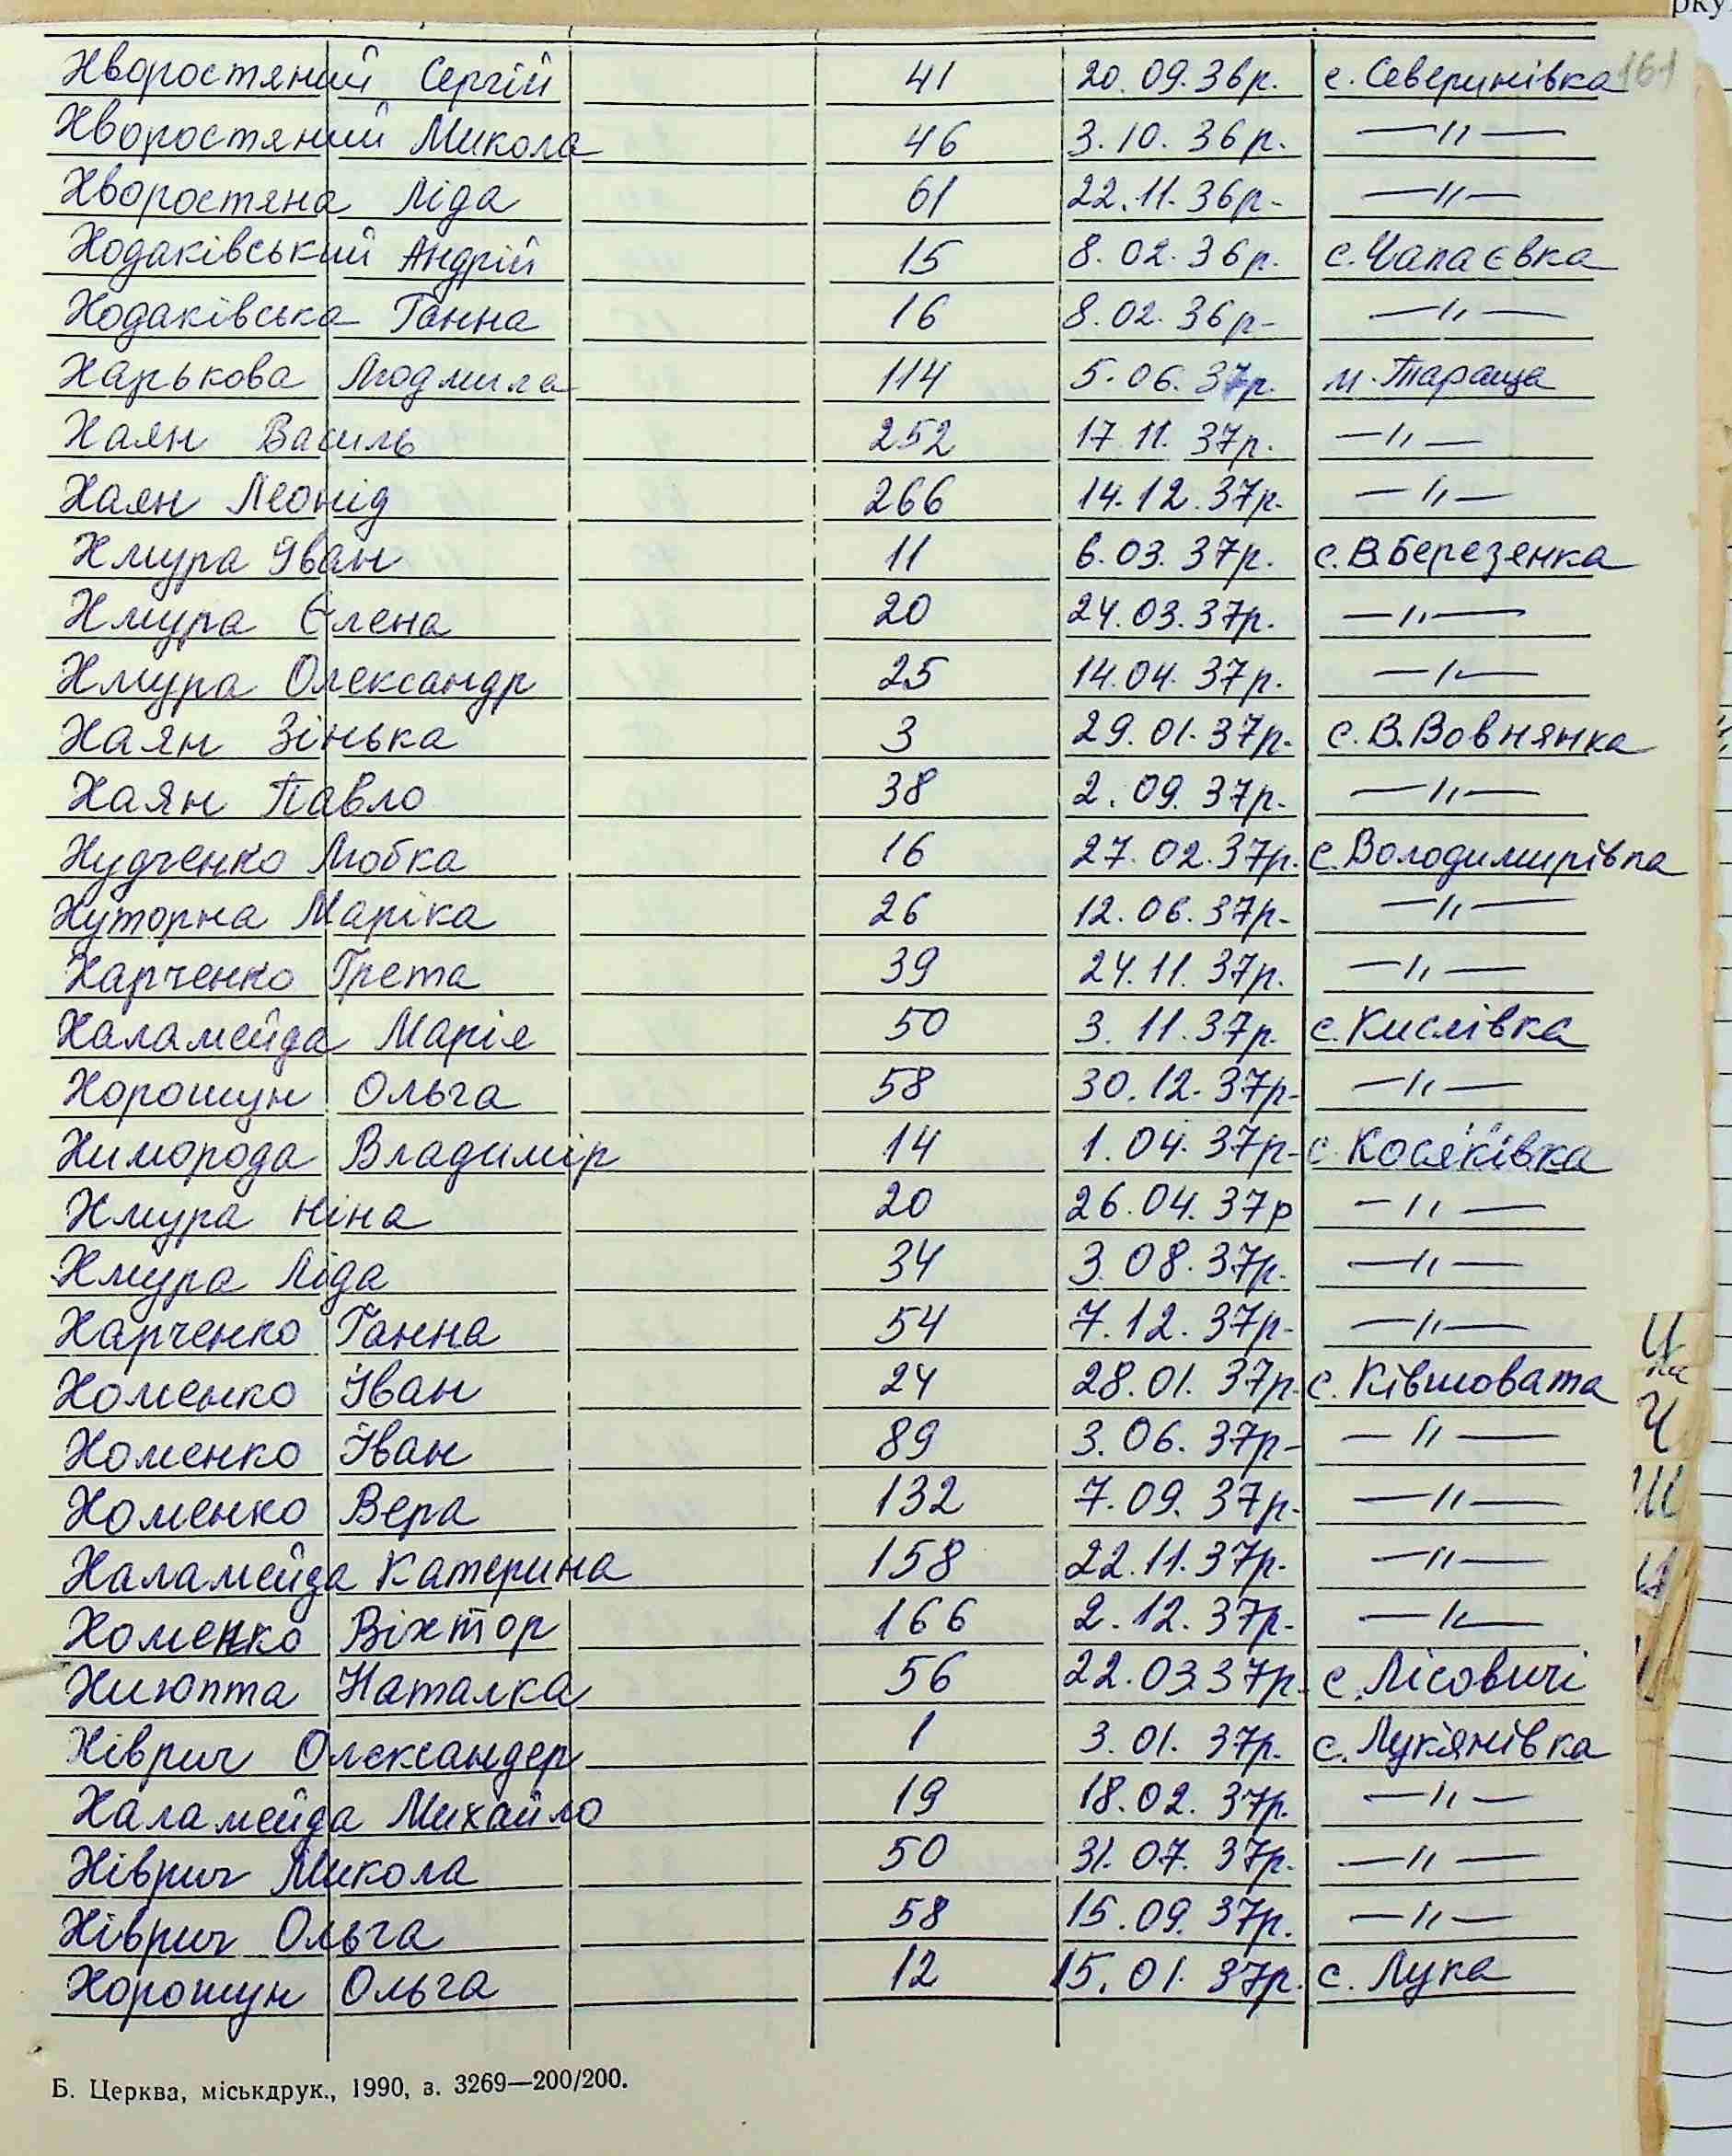 161
Хворостяний Сергій 41 20.09.36р. с. Северинівка
Хворостяний Микола 46 3.10.36р. —〃—
Хворостяна Ліда 61 22.11.36р. —〃—
Ходаківський Андрій 15 8.02.36р. с. Чапаєвка
Ходаківська Ганна 16 8.02.36р. —〃—
Харькова Людмила 114 5.06.37р. м. Тараща
Хаян Василь 252 17.11.37р. —〃—
Хаян Леонід 266 14.12.37р. —〃—
Хмура Яван 11 6.03.37р. с. В.Березянка
Хмура Єлена 20 24.03.37р. —〃—
Хмура Олександр 25 14.04.37р. —〃—
Хаян Зінька 3 29.01.37р. с. В.Вовнянка
Хаян Павло 38 2.09.37р. —〃—
Худченко Любка 16 27.02.37р. с. Володимирівка
Хуторна Маріка 26 12.06.37р. —〃—
Харченко Грета 39 24.11.37р. —〃—
Халамейда Марія 50 3.11.37р. с. Кислівка
Хорошун Ольга 58 30.12.37р. —〃—
Химорода Владимір 14 1.04.37р. с. Косяківка
Хмура Ніна 20 26.04.37р —〃—
Хмура Ліда 34 3.08.37р. —〃—
Харченко Ганна 54 7.12.37р. —〃—
Хоменко Іван 24 28.01.37р. с. Ківшовата
Хоменко Іван 89 3.06.37р. —〃—
Хоменко Вера 132 7.09.37р. —〃—
Халамейда Катерина 158 22.11.37р. —〃—
Хоменко Віхтор 166 2.12.37р. —〃—
Хиюпта Наталка 56 22.03.37р. с. Лісовичі
Хіврич Олександер 1 3.01.37р. с. Лук'янівка
Халамейда Михайло 19 18.02.37р. —〃—
Хіврич Микола 50 31.07.37р. —〃—
Хіврич Ольга 58 15.09.37р. —〃—
Хорошун Ольга 12 15.01.37р. с. Лука
Б. Церква, міськдрук., 1990, з. 3269—200/200.